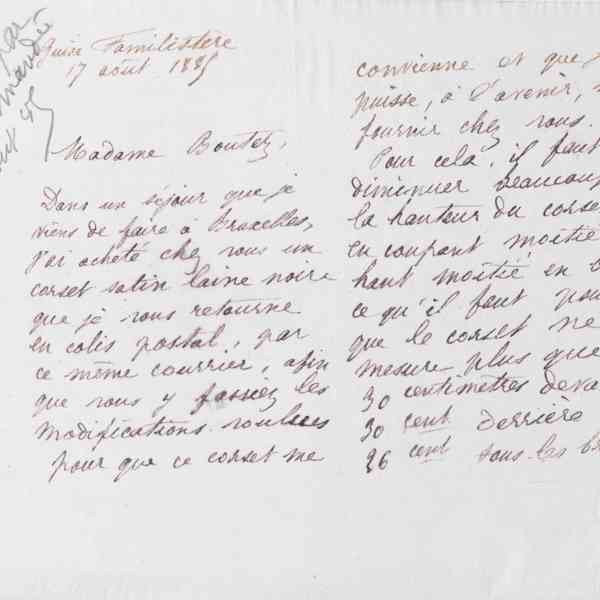 Guise Familistère
17 août 1885
Madame Boutez,
Dans un séjour que je
viens de faire à Bruxelles,
j'ai acheté chez vous un
corset satin laine noire
que je vous retourne
en colis postal, par
ce même courrier, afin
que vous y fassiez les
modifications voulues
pour que ce corset me
convienne et que
puisse, à l'avenir,
fournir chez vous.
Pour cela, il faut
diminuer beaucoup
la hauteur du corset
en coupant moitié
haut moitié en
ce qu'il faut pour
que le corset ne
mesure plus que
30 centimètres deva
30 cent derrière
26 cent sous les br